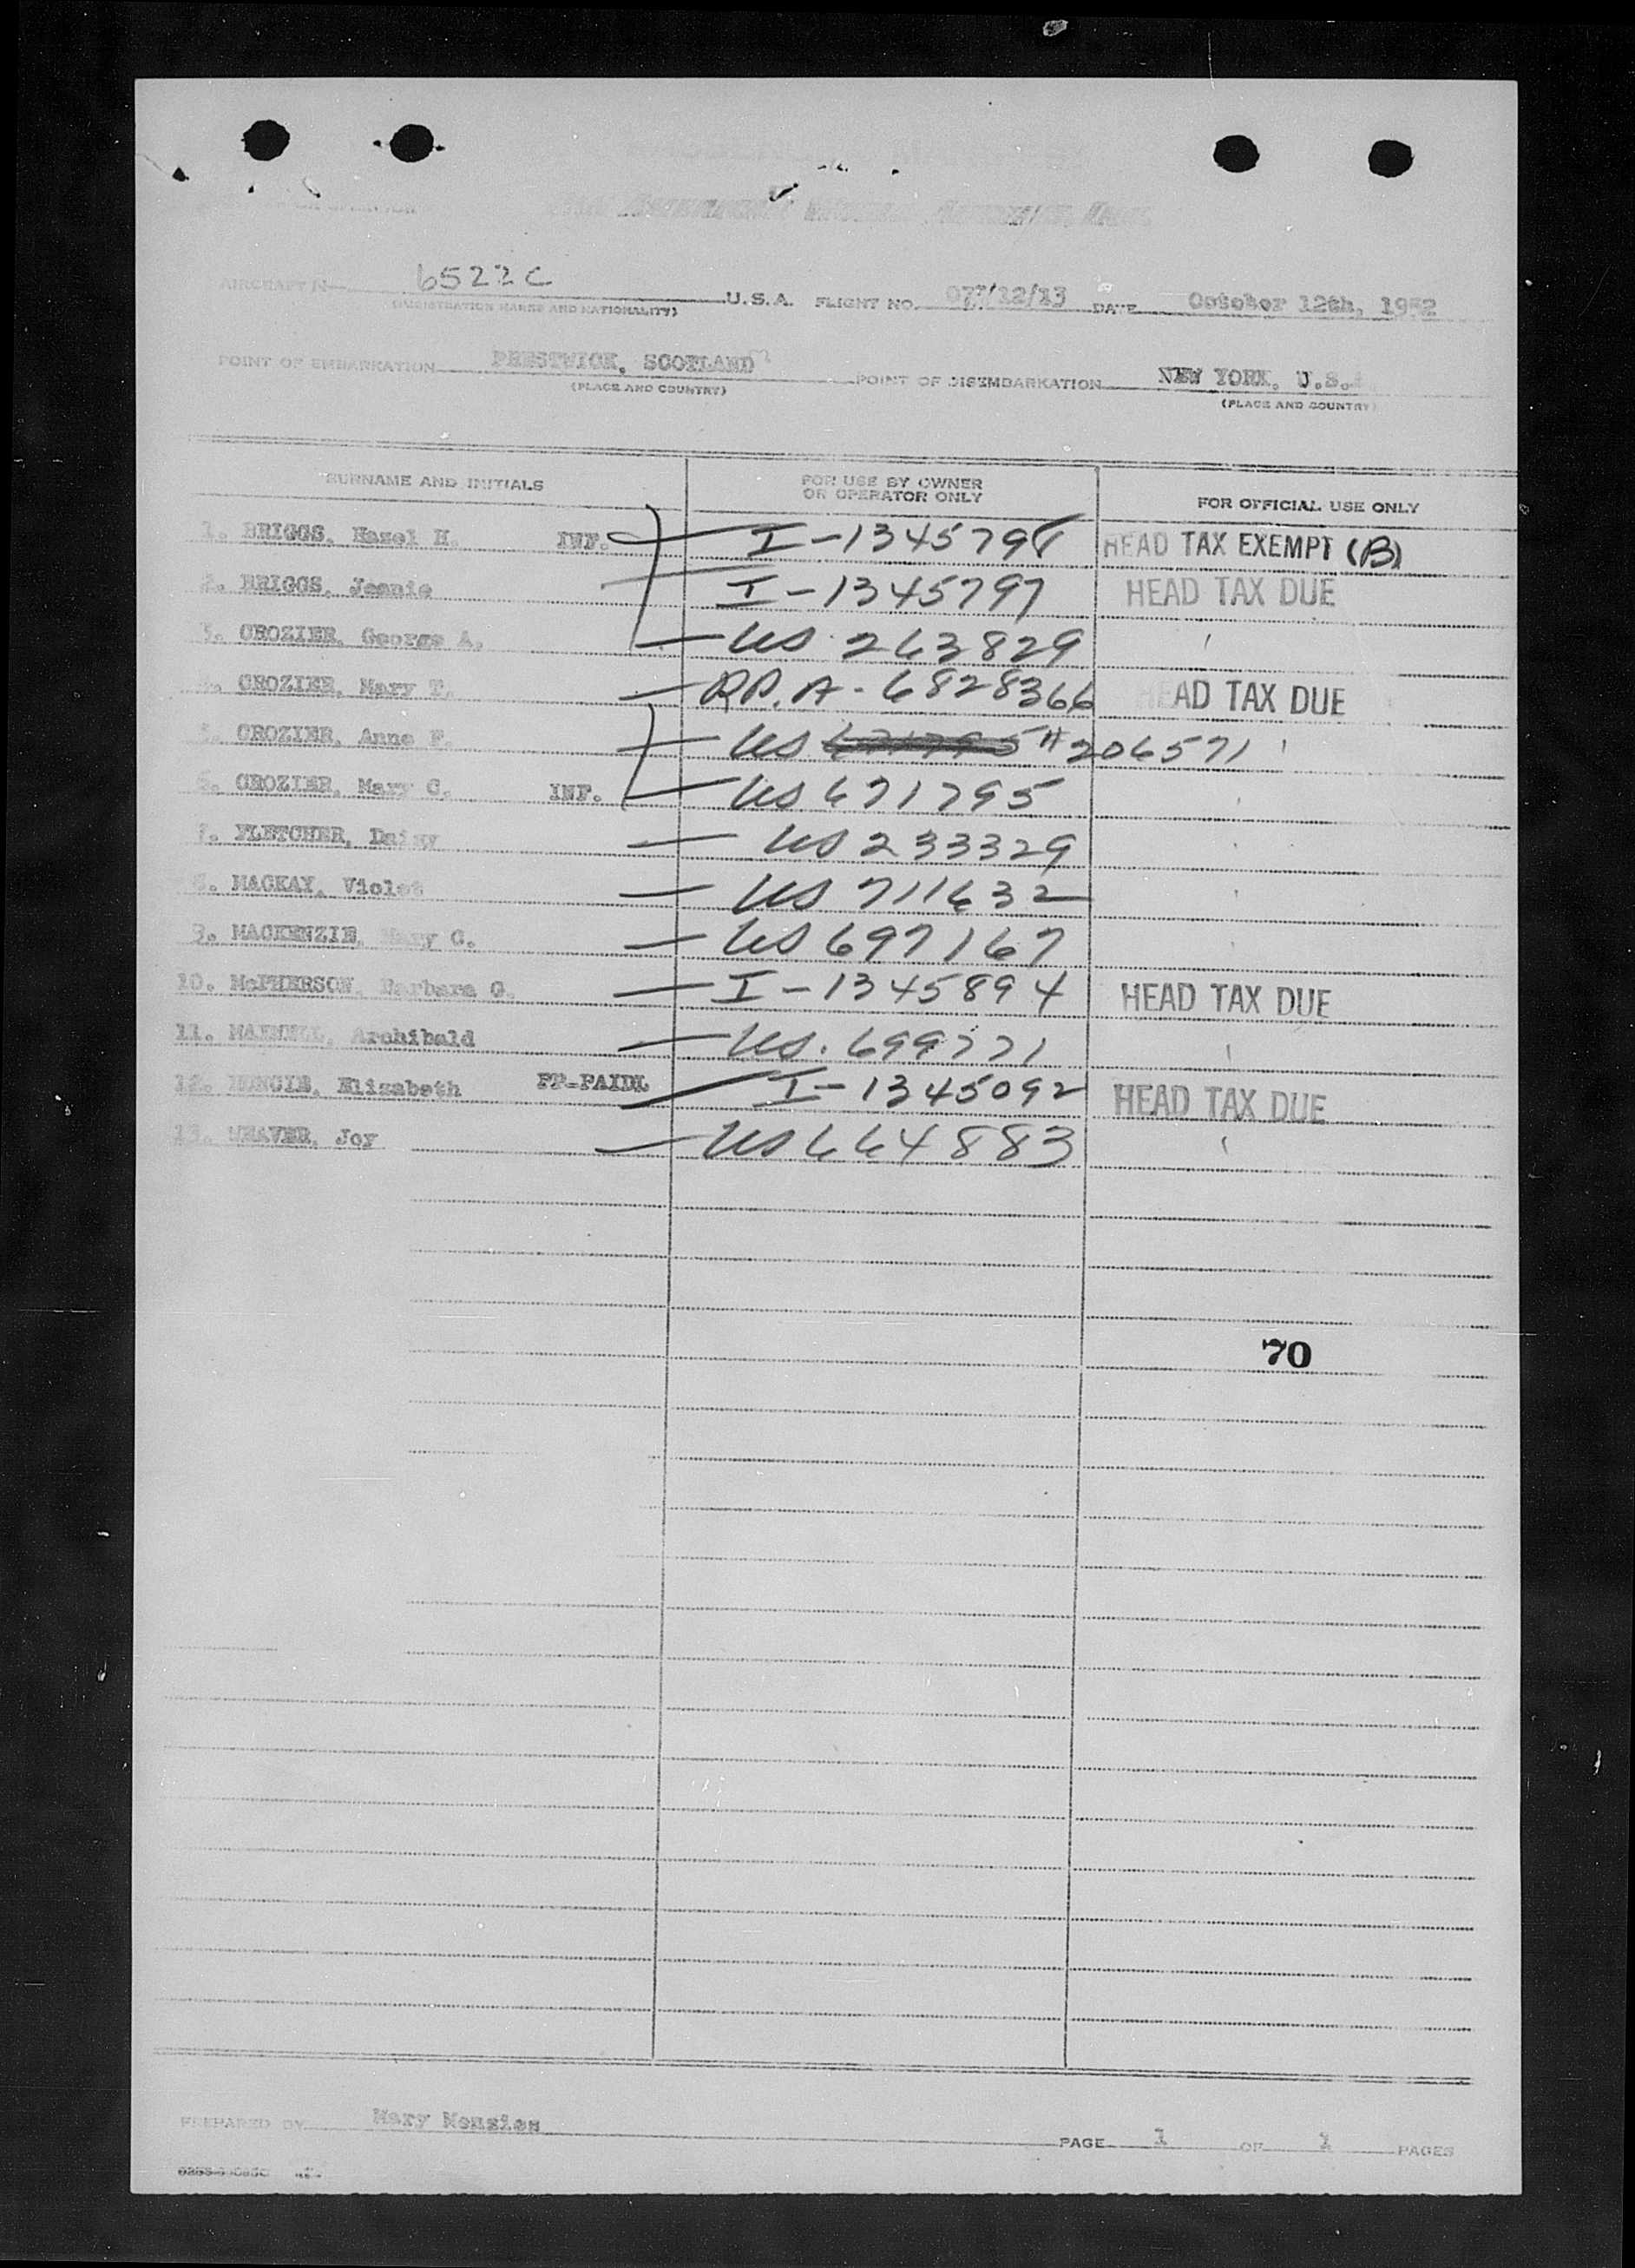 AIRCRAFT N 6522C U.S.A. FLIGHT NO. 077/12/13 DATE October 12th, 1952
(REGISTRATION MARKS AND NATIONALITY)
POINT OF EMBARKATION PRESTWICK, SCOTLAND POINT OF DISEMBARKATION NEW YORK, U.S.
(PLACE AND COUNTRY) (PLACE AND COUNTRY)
SURNAME AND INITIALS FOR USE BY OWNER OR OPERATOR ONLY FOR OFFICIAL USE ONLY
1. BRIGGS, Hazel H. INF. I-1345798 HEAD TAX EXEMPT (B)
2. BRIGGS, Jeanie I-1345797 HEAD TAX DUE
3. CROZIER, George A. US 263829
4. CROZIER, Mary T. RP.A-6828366 HEAD TAX DUE
5. CROZIER, Anne F. US #206571
6. CROZIER, Mary C. INF. US 671795
7. FLETCHER, Daisy US 233329
8. MACKAY, Violet US 711632
9. MACKENZIE, Mary C. US 697167
10. McPHERSON, Barbara G. I-1345894 HEAD TAX DUE
11. Archibald US. 699771
12. Elizabeth PP-PAIDL I-1345092 HEAD TAX DUE
13. WEAVER, Joy US 664883
70
PREPARED BY Mary Menzies
PAGE 1 OF 1 PAGES